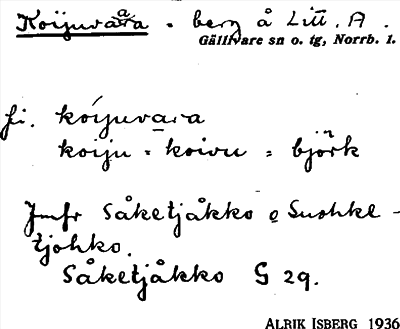 Koijuvaara = berg å Litt. A.
Gällivare sn o. tg, Norrb. l.
fi. koijuvara
koiju = koivu = björk
Jmfr Såketjåkko o Suohke-
tjohko.
Såketjåkko G 29.
ALRIK ISBERG 1936